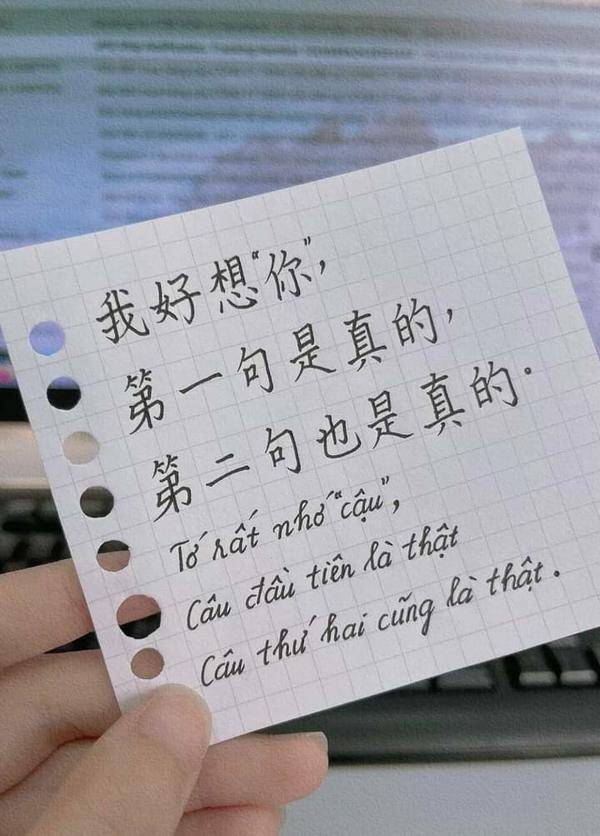 我好想“你”，
第一句是真的，
第二句也是真的.
Tớ rất nhớ “cậu”,
Câu đầu tiên là thật
Câu thứ hai cũng là thật.